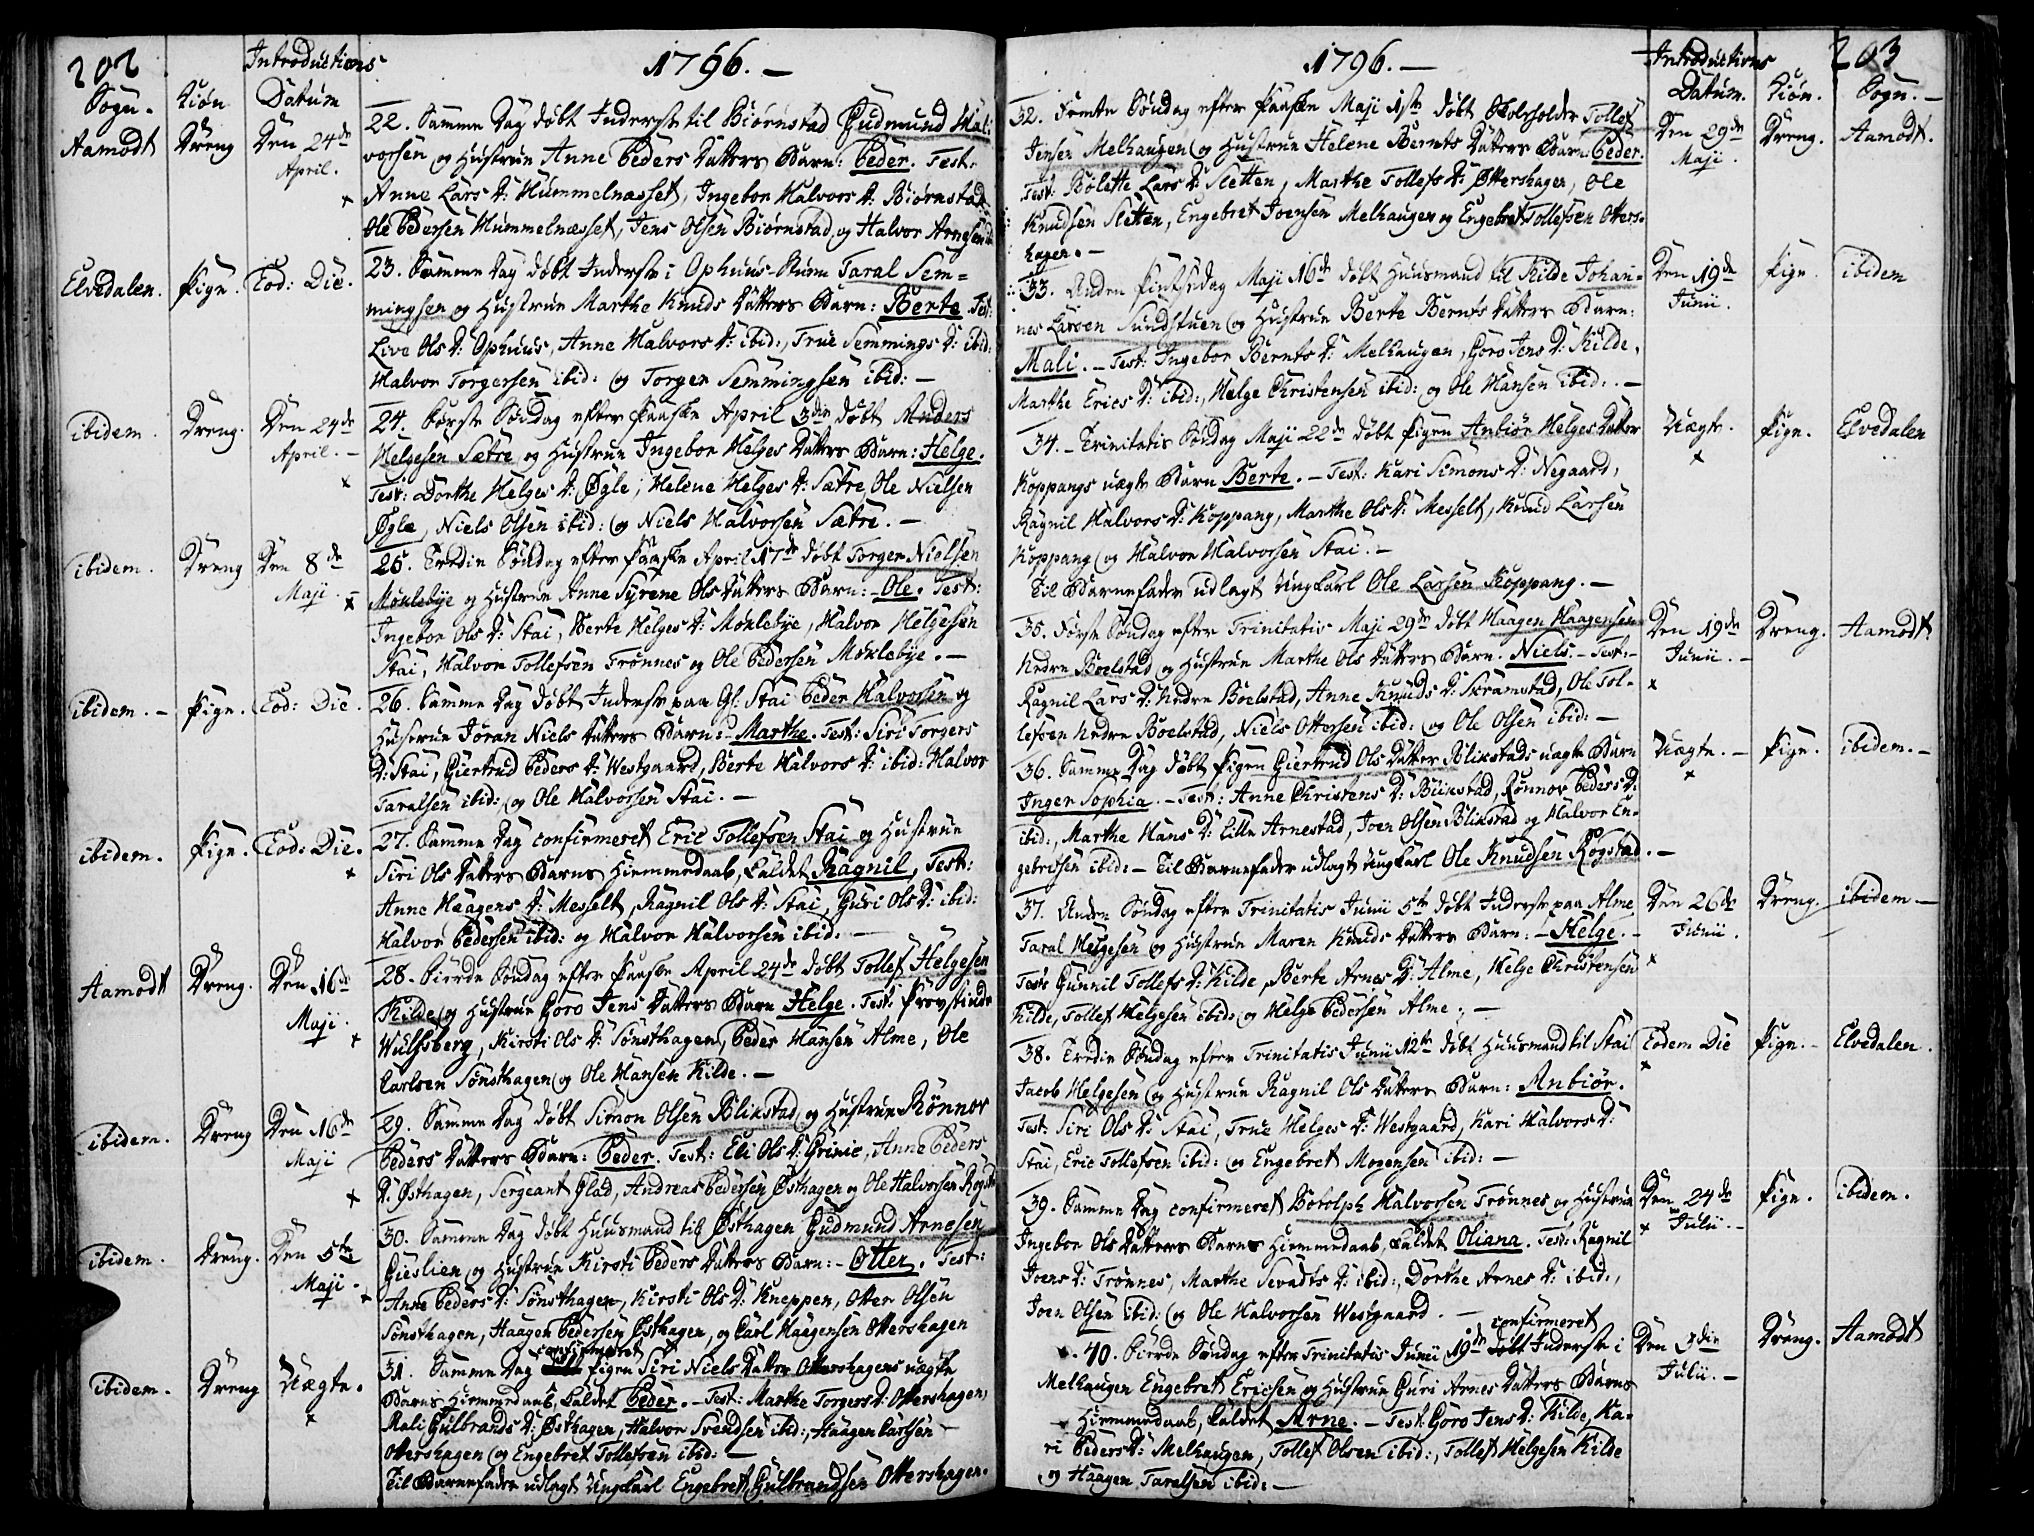 202
Introductions
1796. —
Sogn. Kiøn Datum
Aamodt Dreng Den 24de April.
22. Samme Dag døbt Inderste til Biørnstad Gudmund Hal-
vorsen og Hustrue Anne Peders Datters Barn: Peder. Test:
Anne Lars D: Hummelnæsset, Ingebor Halvors D: Biørnstad
Ole Pedersen Hummelnæsset, Jens Olsen Biørnstad og Halvor Arnesen
Elvedalen. Pige. Eod: Die.
23. Samme Dag døbt Inderste i Ophuus-Stuen Taral Sem-
mingsen og Hustrue Marthe Knuds Datters Barn: Berte. Test:
Live Ols D: Ophuus, Anne Halvors D: ibid:, True Semmings D: ibid:
Halvor Torgersen ibid: og Torger Semmingsen ibid: —
ibidem. Dreng. Den 24de April. —
24. Første Søndag efter Paaske April 3die døbt Anders
Helgesen Sætre og Hustrue Ingebor Helges Datters Barn: Helge.
Test: Dorthe Helges D: Øgle, Helene Helges D: Sætre, Ole Nielsen
Øgle, Niels Olsen ibid: og Niels Halvorsen Sætre. —
ibidem. Dreng Den 8de Maji. —
25. Tredie Søndag efter Paaske April 17de døbt Torger Nielsen
Møklebye og Hustrue Anne Syrene Ols Datters Barn: — Ole. Test:
Ingebor Ols D: Stai, Berte Helges D: Møklebye, Halvor Helgesen
Stai, Halvor Tollefsen Trønnes og Ole Pedersen Møklebye. —
ibidem. — Pige. Eod: Die.
26. Samme Dag døbt Inderste paa Gl: Stai Peder Halvorsen og
Hustrue Jøran Niels Datters Barn: — Marthe. Test: Siri Torgers
D: Stai, Giertrud Peders D: Westgaard, Berte Halvors D: ibid: Halvor
Taralsen ibid: og Ole Halvorsen Stai. —
ibidem. Pige. Eod: Die.
27. Samme Dag confirmeret Eric Tollefsen Stai og Hustrue
Siri Ols Datters Barns Hiemmedaab, kaldet Ragnil, Test:
Anne Haagens D: Messelt, Ragnil Ols D: Stai, Guri Ols D: ibid:
Halvor Pedersen ibid: og Halvor Halvorsen ibid: —
Aamodt Dreng. Den 16de Maji.
28. Fierde Søndag efter Paaske April 24de døbt Tollef Helgesen
Kilde og Hustrue Goro Jens Datters Barn Helge. Test: Provstinde
Wulfsberg, Kirsti Ols D: Sønsthagen, Peder Hansen Alme, Ole
Carlsen Sønsthagen og Ole Hansen Kilde. —
ibidem. Dreng Den 16de Maji
29. Samme Dag døbt Simon Olsen Blikstad og Hustrue Rønnov
Peders Datters Barn: Peder. Test: Eli Ols D: Grinie, Anne Peders
D: Østhagen, Sergeant Glad, Andreas Pedersen Østhagen og Ole Halvorsen
ibidem. Dreng. Den 5te Maji.
30. Samme Dag døbt Huusmand til Østhagen Gudmund Arnesen
og Hustrue Kirsti Peders Datters Barn: — Otter. Test:
Anne Peders D: Sønsthagen, Kirsti Ols D: Kneppen, Otter Olsen
Sønsthagen, Haagen Pedersen Østhagen, og Carl Haagensen Ottershagen
ibidem. Dreng Uægte.
confirmeret
31. Samme Dag Pigen Siri Niels Datter Ottershagens uægte
Barns Hiemmedaab, kaldet Peder. — Test: Marthe Torgers D: Ottershagen,
Mali Gulbrands D: Østhagen, Halvor Svendsen ibid:, Haagen Carlsen
Ottershagen og Engebret Tollefsen ibid: —
Til Barnefader udlagt Ungkarl Engebret Gulbrandsen Ottershagen.
1796. —
Introductions
203
Datum. Kiøn. Sogn. —
32. Femte Søndag efter Paaske Maji 1ste døbt Skoleholder Tollef
Jensen Melhaugen og Hustrue Helene Bernts Datters Barn: Peder.
Test: Bolette Lars D: Sletten, Marthe Tollefs D: Ottershagen, Ole
Knudsen Sletten, Engebret Joensen Melhaugen og Engebret Tollefsen Otters-
hagen. —
Den 29de Maji. Dreng. Aamodt.
33. Anden Pintsedag Maji 16de døbt Huusmand til Kilde Johan-
nes Larsen Sundstuen og Hustrue Berte Bernts Datters Barn:
Mali. — Test: Ingebor Bernts D: Melhaugen, Goro Jens D: Kilde,
Marthe Erics D: ibid:, Helge Christensen ibid: og Ole Hansen ibid: . —
Den 19de Junii. Pige. ibidem
34. — Trinitatis Søndag Maji 22de døbt Pigen Anbiør Helges Datter
Koppangs uægte Barn Berte. — Test: Kari Simons D: Negaard,
Ragnil Halvors D: Koppang, Marthe Ols D: Messelt, Knud Larsen
Koppang og Halvor Halvorsen Stai. —
Til Barnefader udlagt Ungkarl Ole Larsen Koppang. —
Uægte. Pige. Elvedalen
35. Første Søndag efter Trinitatis Maji 29de døbt Haagen Haagensen
Nedre Boelstad og Hustrue Marthe Ols Datters Barn. Niels. — Test: —
Ragnil Lars D: Nedre Boelstad, Anne Knuds D: Skramstad, Ole Tol-
lefsen Nedre Boelstad, Niels Ottersen ibid: og Ole Olsen ibid: —
Den 19de Junii. — Dreng. Aamodt.
36. Samme Dag døbt Pigen Giertrud Ols Datter Blikstads uægte Barn
Inger Sophia. — Test: Anne Christens D: Blikstad, Rønnov Peders D:
ibid:, Marthe Hans D: Lille Arnestad, Joen Olsen Blikstad og Halvor En-
gebretsen ibid: — Til Barnefader udlagt Ungkarl Ole Knudsen Rogstad. —
Uægte. — Pige. ibidem. —
37. Anden Søndag efter Trinitatis Junii 5te døbt Inderste paa Alme
Taral Helgesen og Hustrue Maren Knuds Datters Barn: — Helge. —
Test: Gunnil Tollefs D: Kilde, Berte Arnes D: Alme, Helge Christensen
Kilde, Tollef Helgesen ibid: og Helge Pedersen Alme. —
Den 26de Junii. Dreng. ibidem —
38. Tredie Søndag efter Trinitatis Junii 12te døbt Huusmand til Stai
Jacob Helgesen og Hustrue Ragnil Ols Datters Barn: Anbiør.
Test: Siri Ols D: Stai, True Helges D: Westgaard, Kari Halvors D:
Stai, Eric Tollefsen ibid: og Engebret Mogensen ibid: —
Eodem Die Pige. — Elvedalen.
39. Samme Dag confirmeret Botolph Halvorsen Trønnes og Hustrue
Ingebor Ols Datters Barns Hiemmedaab, kaldet Oliana. Test: Ragnil
Joens D: Trønnes, Marthe Sevalds D: ibid:, Dorthe Arnes D: ibid:,
Joen Olsen ibid: og Ole Halvorsen Westgaard. —
Den 24de Julii. — Pige. ibidem.
confirmeret
40. Fierde Søndag efter Trinitatis Junii 19de døbt Inderste i
Melhaugen Engebret Ericsen og Hustrue Guri Arnes Datters Barns
Hiemmedaab, kaldet Arne. — Test: Goro Jens D: Kilde, Ka-
ri Peders D: Melhaugen, Tollef Olsen ibid:, Tollef Helgesen Kilde
og Haagen Taralsen ibid: —
Den 3die Julii. — Dreng. Aamodt